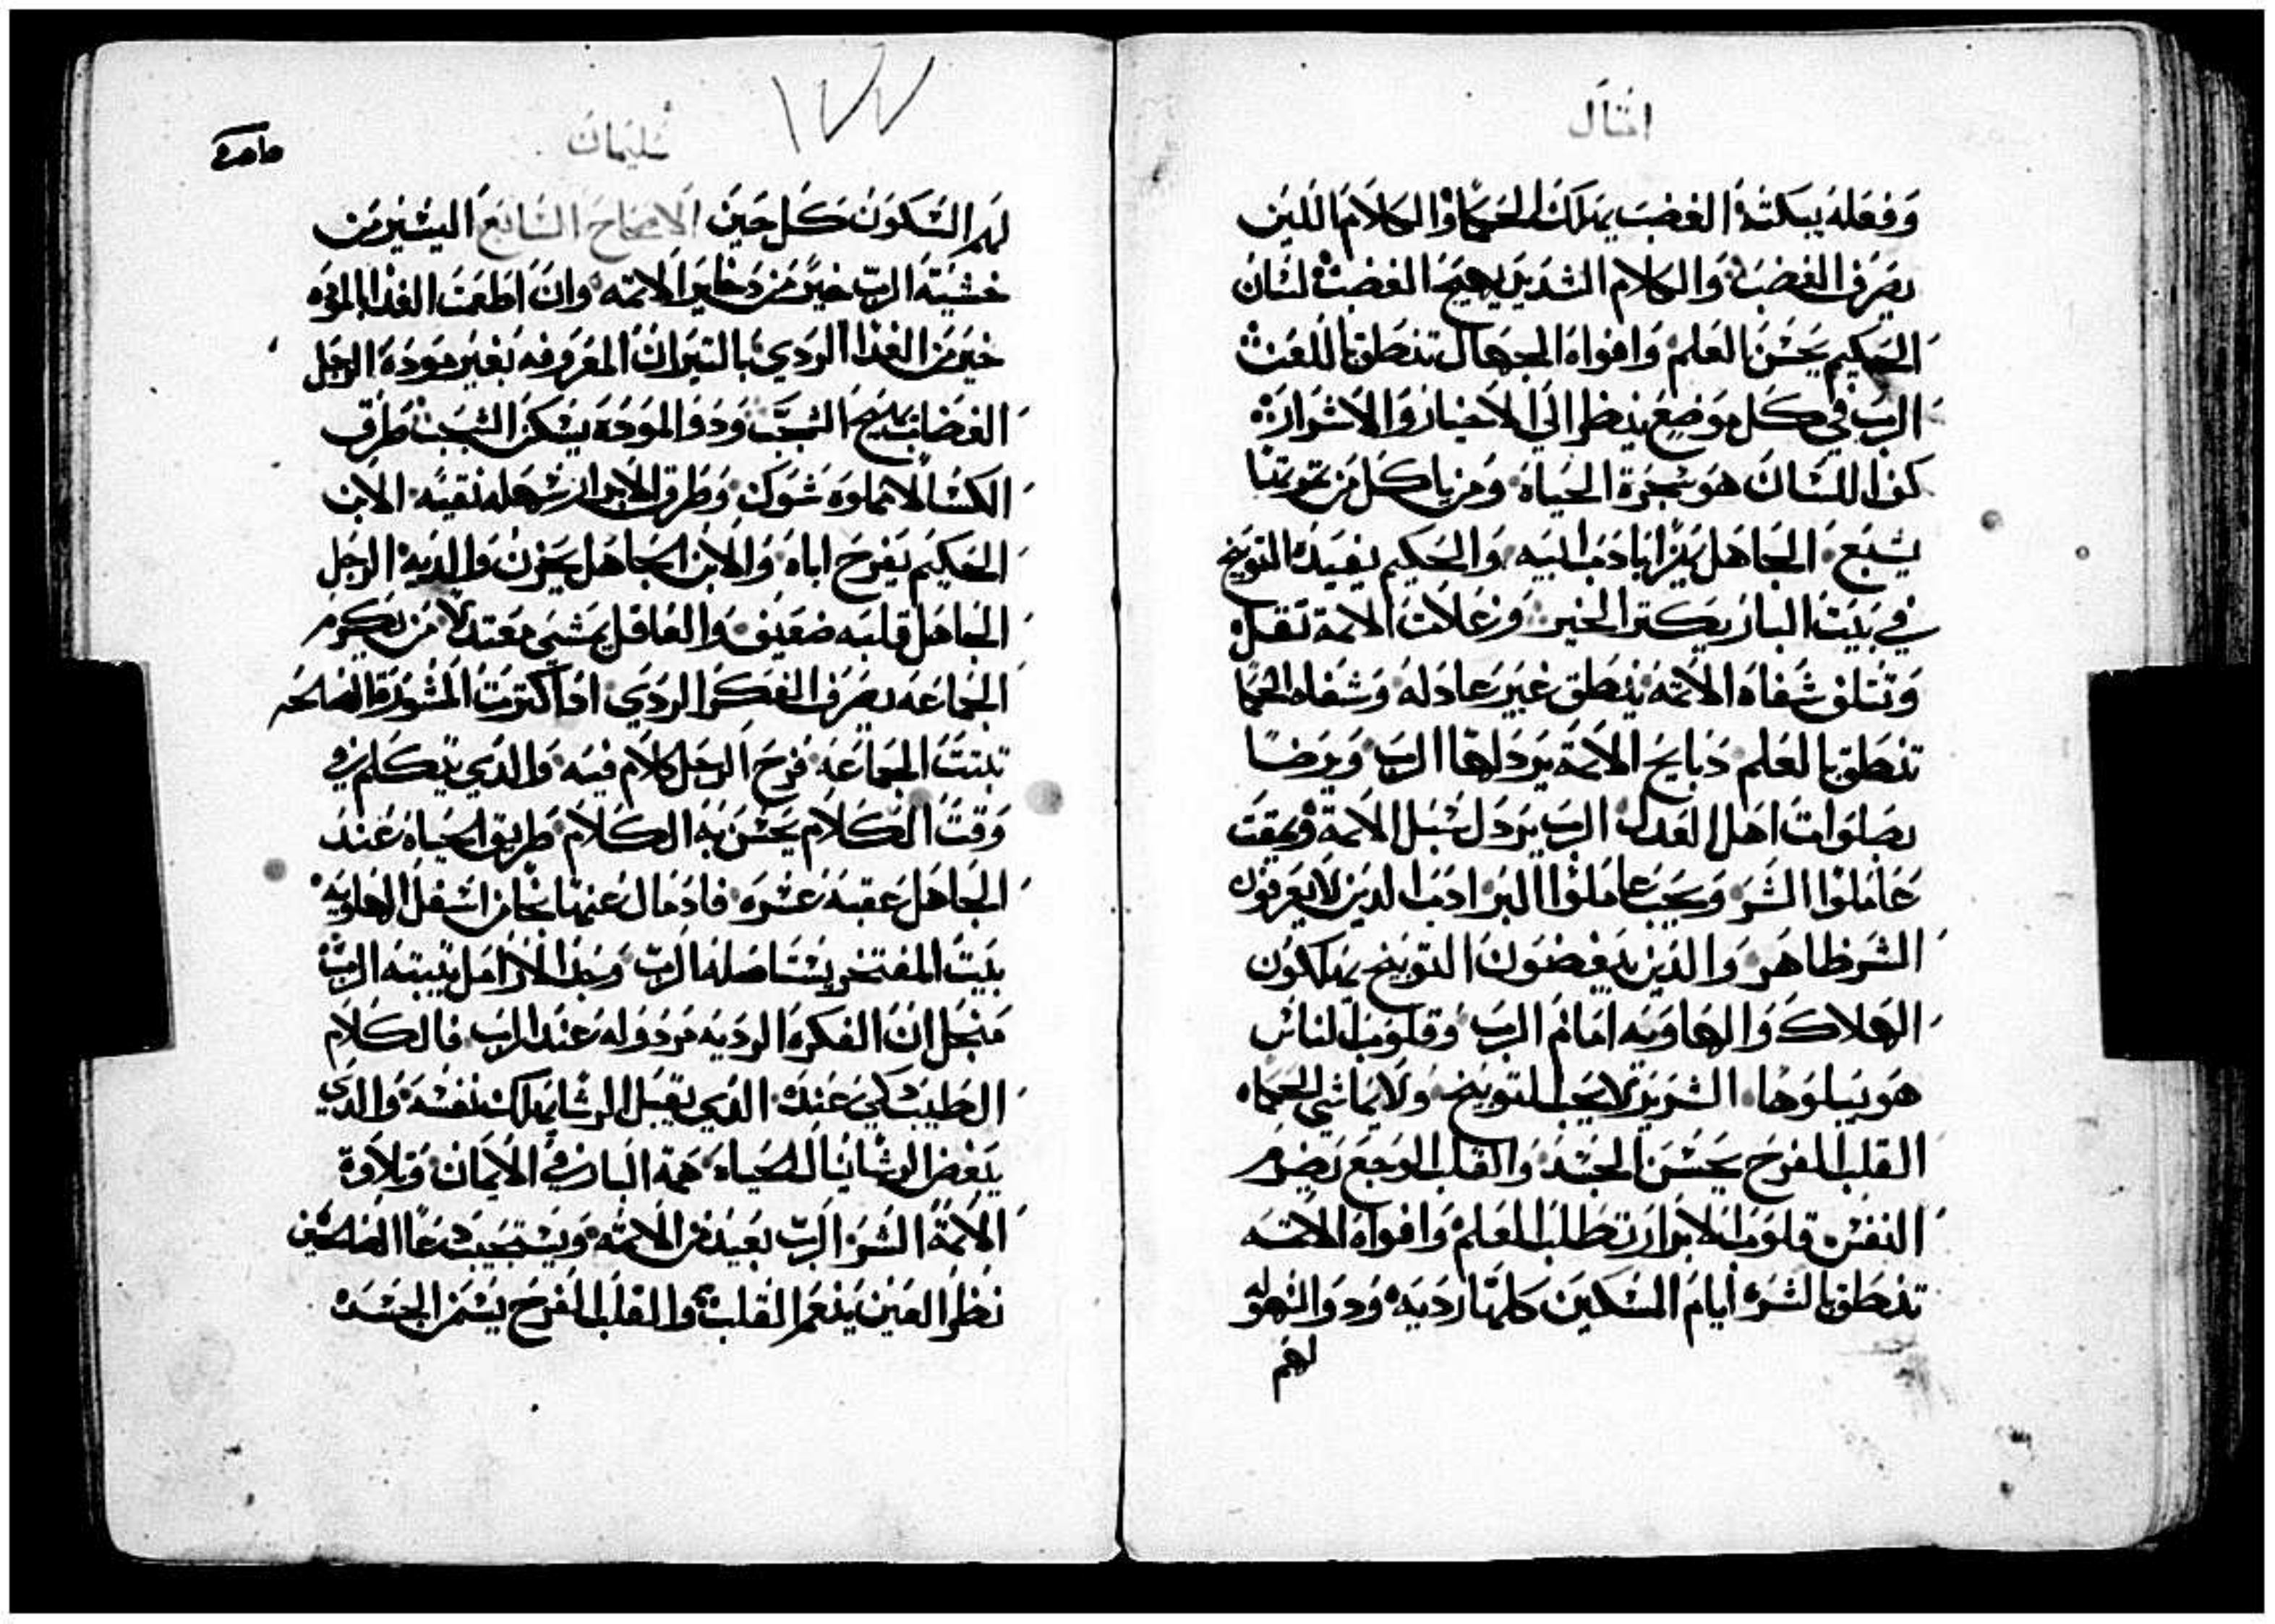 امثال
وفعله يبكته الغضب يهلك الحكما والكلام اللين
يصرف الغضب والكلام الشديد يهيج الغضب لسان
الحكيم يحسن العلم وافواه الجهال تنطق باللعنه
الرب في كل موضع ينظر الي الاخيار والاشرار
كف اللسان هو شجرة الحياة ومن ياكل من ثمرتها
يشبع الجاهل يزرا بادب ابيه والحكيم يفيده التوبيخ
في بيت البار يكتر الخير وغلات الاتمة تقل
وتتلف شفاه الاتمه ينطق غير عادله وشفاه الحكما
تنطق بالعلم دبايح الاتمة يردلها الرب ويرضا
بصلوات اهل العدل الرب يردل سبل الاتمة ويمقت
عاملوا الشر ويحب عاملوا البر ادب الدين لا يعرفون
الشر ظاهر والدين يبغضون التوبيخ يهلكون
الهلاك والهاويه امام الرب وقلوب الناس
هو يبلوها الشرير لا يحب التوبيخ ولا يماشي الحكماه
القلب الفرح يحسن الجسد والقلب الوجع يضرم
النفس قلوب الابرار تطلب العلم وافواه الاتمه
تنطق بالشره ايام المسكين كلها رديه ودو
لهم
سليمان
لهم السكون كل حين الاصحاح السابع اليسير من
خشية الرب خير من دخاير الاتمه وان اطعمت الغدا بالموده
خير من الغدا الردي بالتيران المعروفه بغير مودة الرجل
الغضاب يهيج الشجب ودو المودة يسكن الشجب طرق
الكسالا مملوه شوك وطرق الابرار سهله نقيه الابن
الحكيم يفرح اباه والابن الجاهل يحزن والديه الرجل
الجاهل قلبه ضعيف والعاقل يمشي معتدلا من يكرم
الجماعه يصرف الفكر الردي اداكترت المشورة الصالحه
تبتت الجماعه فرح الرجل كلام فيه والدي يتكلم في
وقت الكلام يحسن به الكلام طريق الحياه عند
الجاهل عقبه عشره فادمال عنها نجا من اسفل الهاويه
بيت المفتخر يستاصله الرب وحد الارامل يتبته الرب
منجل ان الفكرة الرديه مردوله عند الرب فالكلام
الطيب عنده الدي يقبل الرشا يهلك نفسه والدي
يبغض الرشا ينال الحياه همة البار في الايمان وتلاوة
الاتمة الشر الرب بعيد من الاتمه ويستجيب دعا الصالحين
نظر العين ينعم القلب والقلب الفرح يسمن الجسد